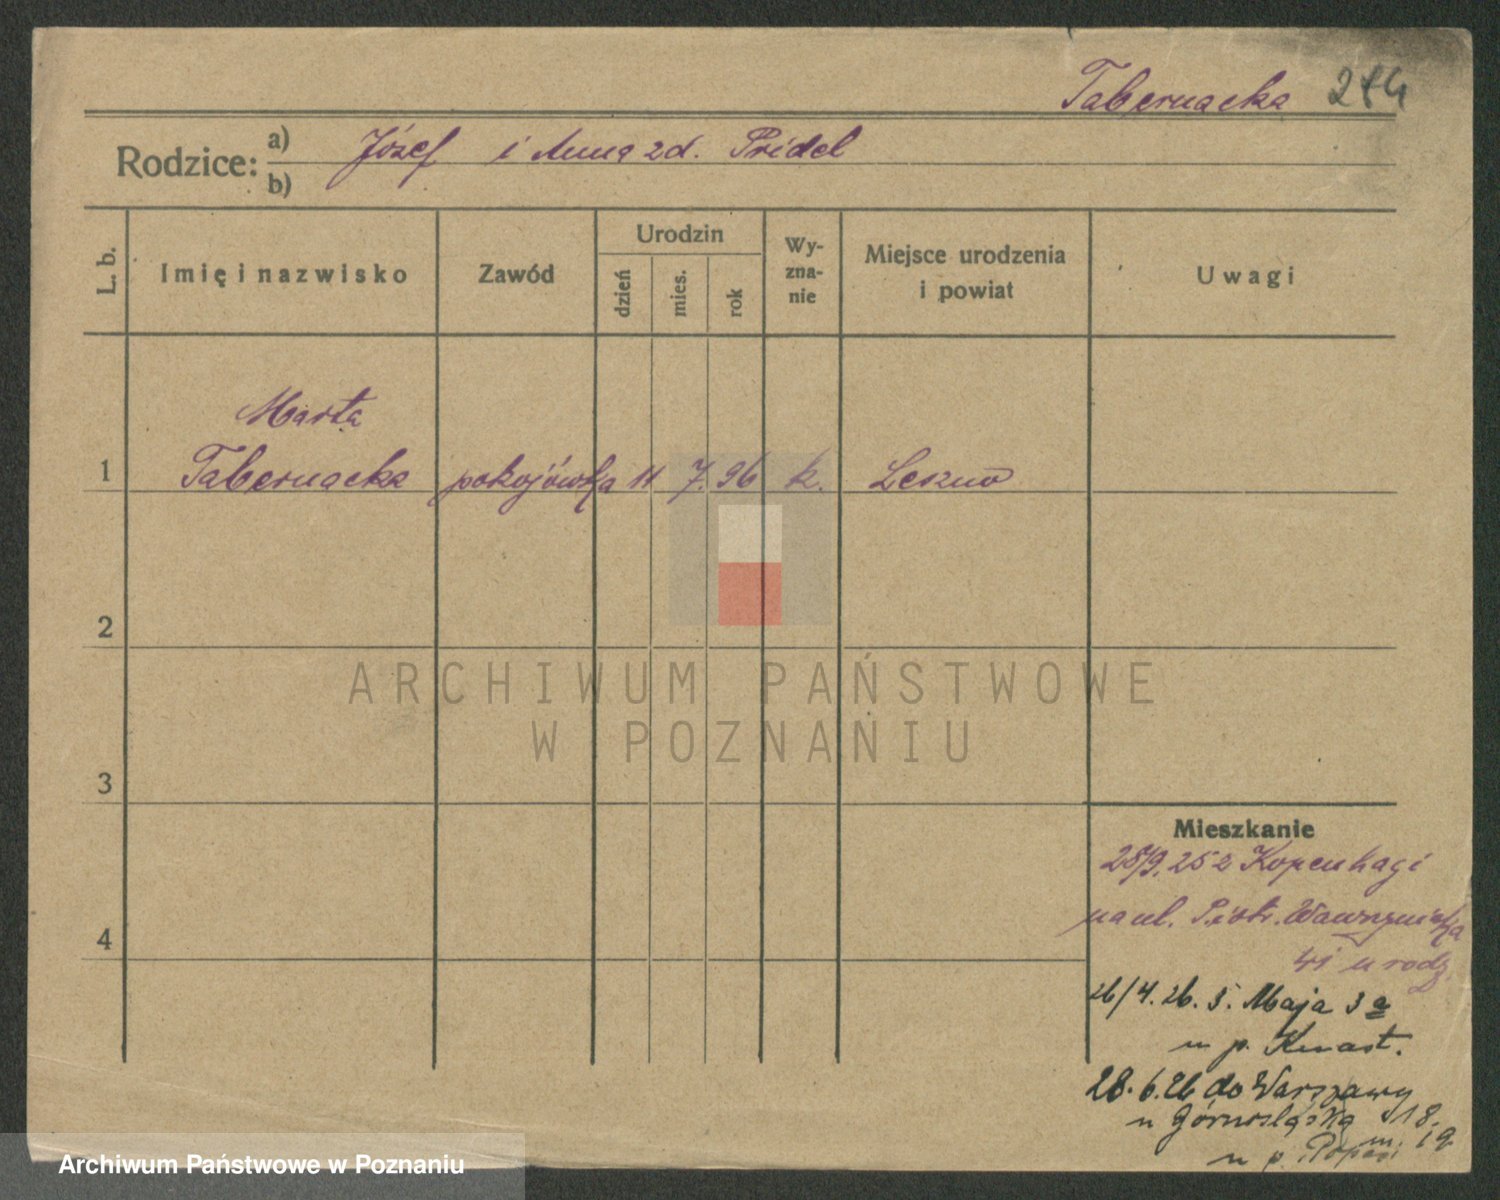 Tabernacka 284
Rodzice: a) Józef i Anna zd. Pridel
b)
L. b.
Imię i nazwisko
Zawód
Urodzin
dzień
mies.
rok
Wy-
zna-
nie
Miejsce urodzenia
i powiat
Uwagi
Marta
1 Tabernacka pokojówka 11 7. 96 k. Leszno
2
3
4
Mieszkanie
25/9. 25 z Kopenhagi
na ul. Piotr. Wawrzyniaka
41 u rodz.
26/4. 26. 3. Maja 3 a
u p. Kwast.
28. 6. 26 do Warszawy
u Górnośląska 18.
m. 19
u p.
ARCHIWUM PAŃSTWOWE
W POZNANIU
Archiwum Państwowe w Poznaniu